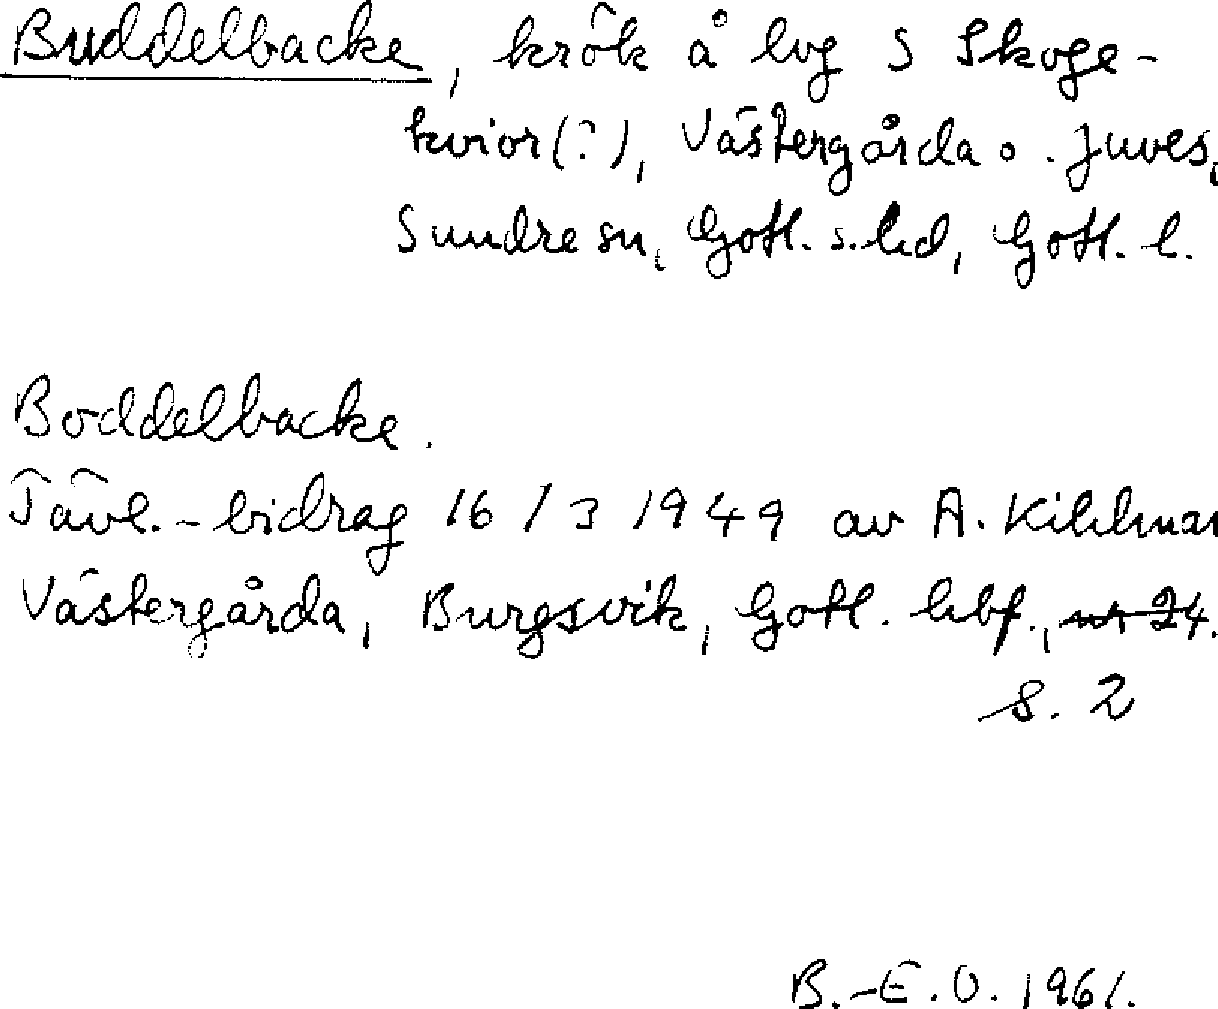 Buddelbacke, krök å lvg S Skoge-
kvior(?), Västergårda o. Juves,
Sundre sn, Gotl. s. hd, Gotl. l.
Boddelbacke.
Tävl.-bidrag 16/3 1949 av A. Kihlman
Västergårda, Burgsvik, Gotl. hbf., nr 24.
s. 2
B.-E. O. 1961.